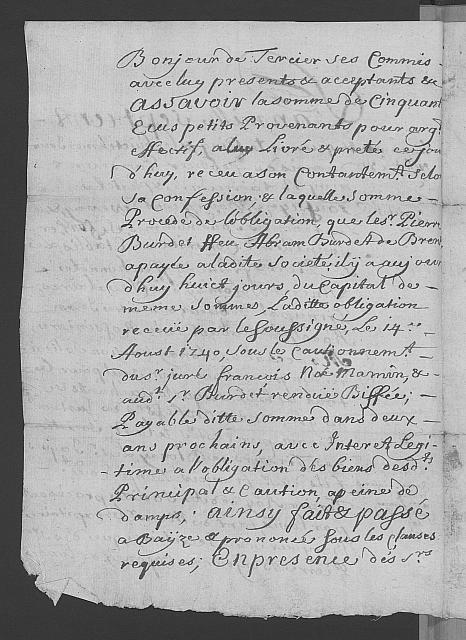 Bonjour de Tercier ses Commis
avec luy presents & acceptants &
ASSAVOIR la somme de Cinquant
Ecus petits Provenants pour arg.
effectif, a luy Livré & preté ce jou
d'huy, receu a son Contantem.t Selo
sa Confession, & laquelle somme
Procede de l'obligation, que le s.r Pierre
Burdet ffeu Abram Burdet de Bren
a payée a ladite societé, il y a aujour
d'huy huict jours, du Capital de
meme sommes, Laditte obligation
receuë par le soussigné, Le 14.e
Aoust 1740, sous le Cautionnem.t
du s.r juré francois Noé Mamin, &
aud.t s.r Burdet renduë Biffée;
Payable ditte somme dans deux
ans prochains, avec Interet Legi-
time a l'obligation des biens desd.ts
Principal & Caution, a peine de
damps; ainsy fait & passé
a Baÿze & prononcé sous les clauses
requises; En presence dés S.rs